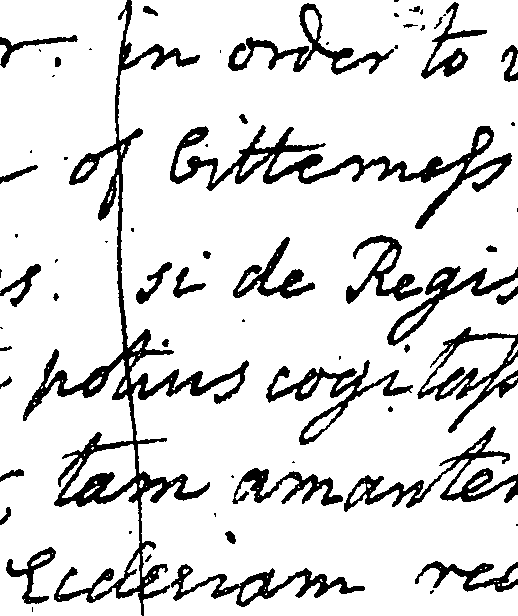 r. in order to
of bitterneſs
s. si de Regis
potius cogitaſs
tam amanter
Ecclesiam rec